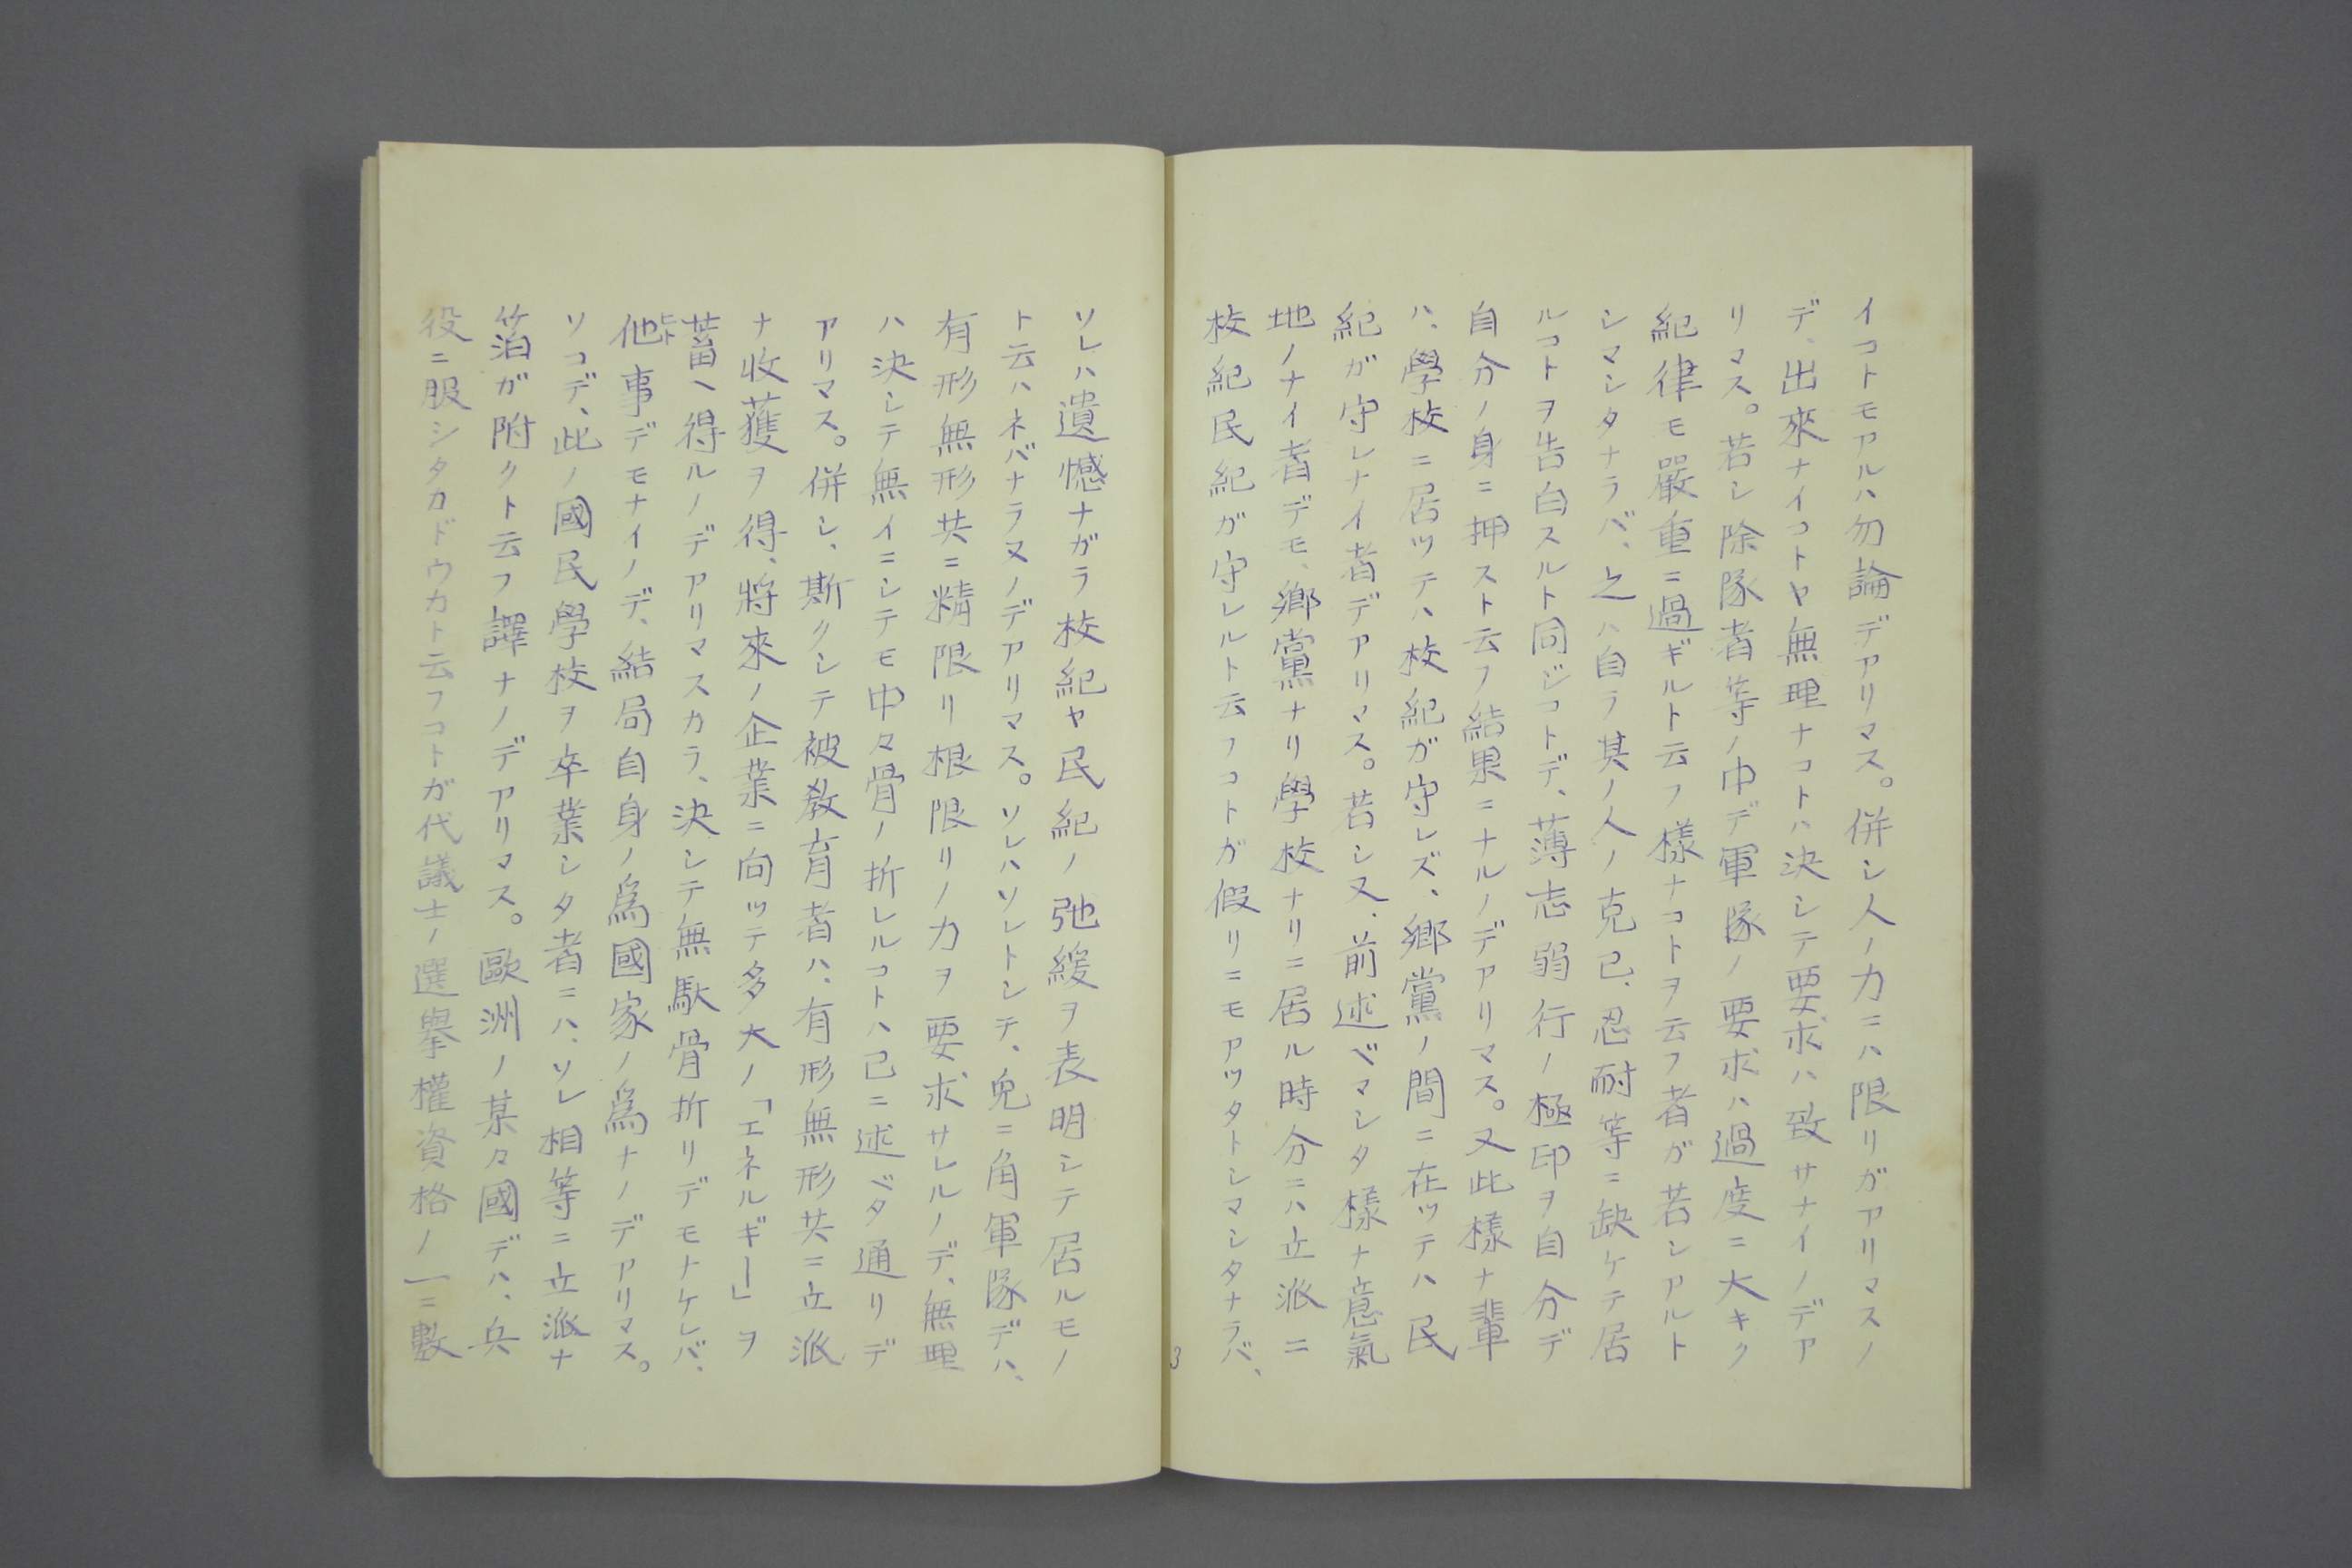 イコトモアルハ勿論デアリマス。併シ人ノ力ニハ限リガアリマスノ
デ、出來ナイコトヤ無理ナコトハ決シテ要求ハ致サナイノデア
リマス。若シ除隊者等ノ中デ軍隊ノ要求ハ過度ニ大キク
紀律モ嚴重ニ過ギルト云フ様ナコトヲ云フ者ガ若シアルト
シマシタナラバ、之ハ自ラ其ノ人ノ克己、忍耐等ニ缺ケテ居
ルコトヲ告白スルト同ジコトデ、薄志弱行ノ極印ヲ自分デ
自分ノ身ニ押スト云フ結果ニナルノデアリマス。又此様ナ輩
ハ、學校ニ居ツテハ校紀ガ守レズ、鄉黨ノ間ニ在ツテハ民
紀ガ守レナイ者デアリマス。若シ又、前述ベマシタ様ナ意氣
地ノナイ者デモ、鄉黨ナリ學校ナリニ居ル時分ニハ立派ニ
校紀民紀ガ守レルト云フコトガ假リニモアツタトシマシタナラバ、
3
ソレハ遺憾ナガラ校紀ヤ民紀ノ弛緩ヲ表明シテ居ルモノ
ト云ハネバナラヌノデアリマス。ソレハソレトシテ、兔ニ角軍隊デハ、
有形無形共ニ精限リ根限リノ力ヲ要求サレルノデ、無理
ハ決シテ無イニシテモ中々骨ノ折レルコトハ已ニ述ベタ通リデ
アリマス。併シ、斯クシテ被敎育者ハ、有形無形共ニ立派
ナ收獲ヲ得、將來ノ企業ニ向ッテ多大ノ「エネルギー」ヲ
蓄ヘ得ルノデアリマスカラ、決シテ無駄骨折リデモナケレバ、
他事デモナイノデ、結局自身ノ爲國家ノ爲ナノデアリマス。
ソコデ、此ノ國民學校ヲ卒業シタ者ニハ、ソレ相等ニ立派ナ
箔ガ附クト云フ譯ナノデアリマス。歐洲ノ某々國デハ、兵
役ニ服シタカドウカト云フコトガ代議士ノ選擧權資格ノ一ニ數